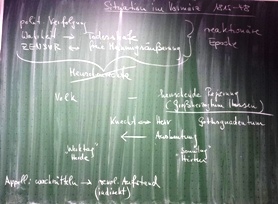 Situation im Vormärz 1815-48
polit. Verfolgung
Wahrheit → Todesstrafe
ZENSUR ← freie Meinungsäußerung
reaktionäre
Epoche
Menschenrechte
Volk — herrschende Regierung
(Großherzogtum Hessen)
Knecht ↔ Herr Gottesgnadentum
← Ausbeutung
"Werktag" "Sonntag"
Herde Hirten
Appell: wachrütteln → revol. Aufstand
(indirekt)